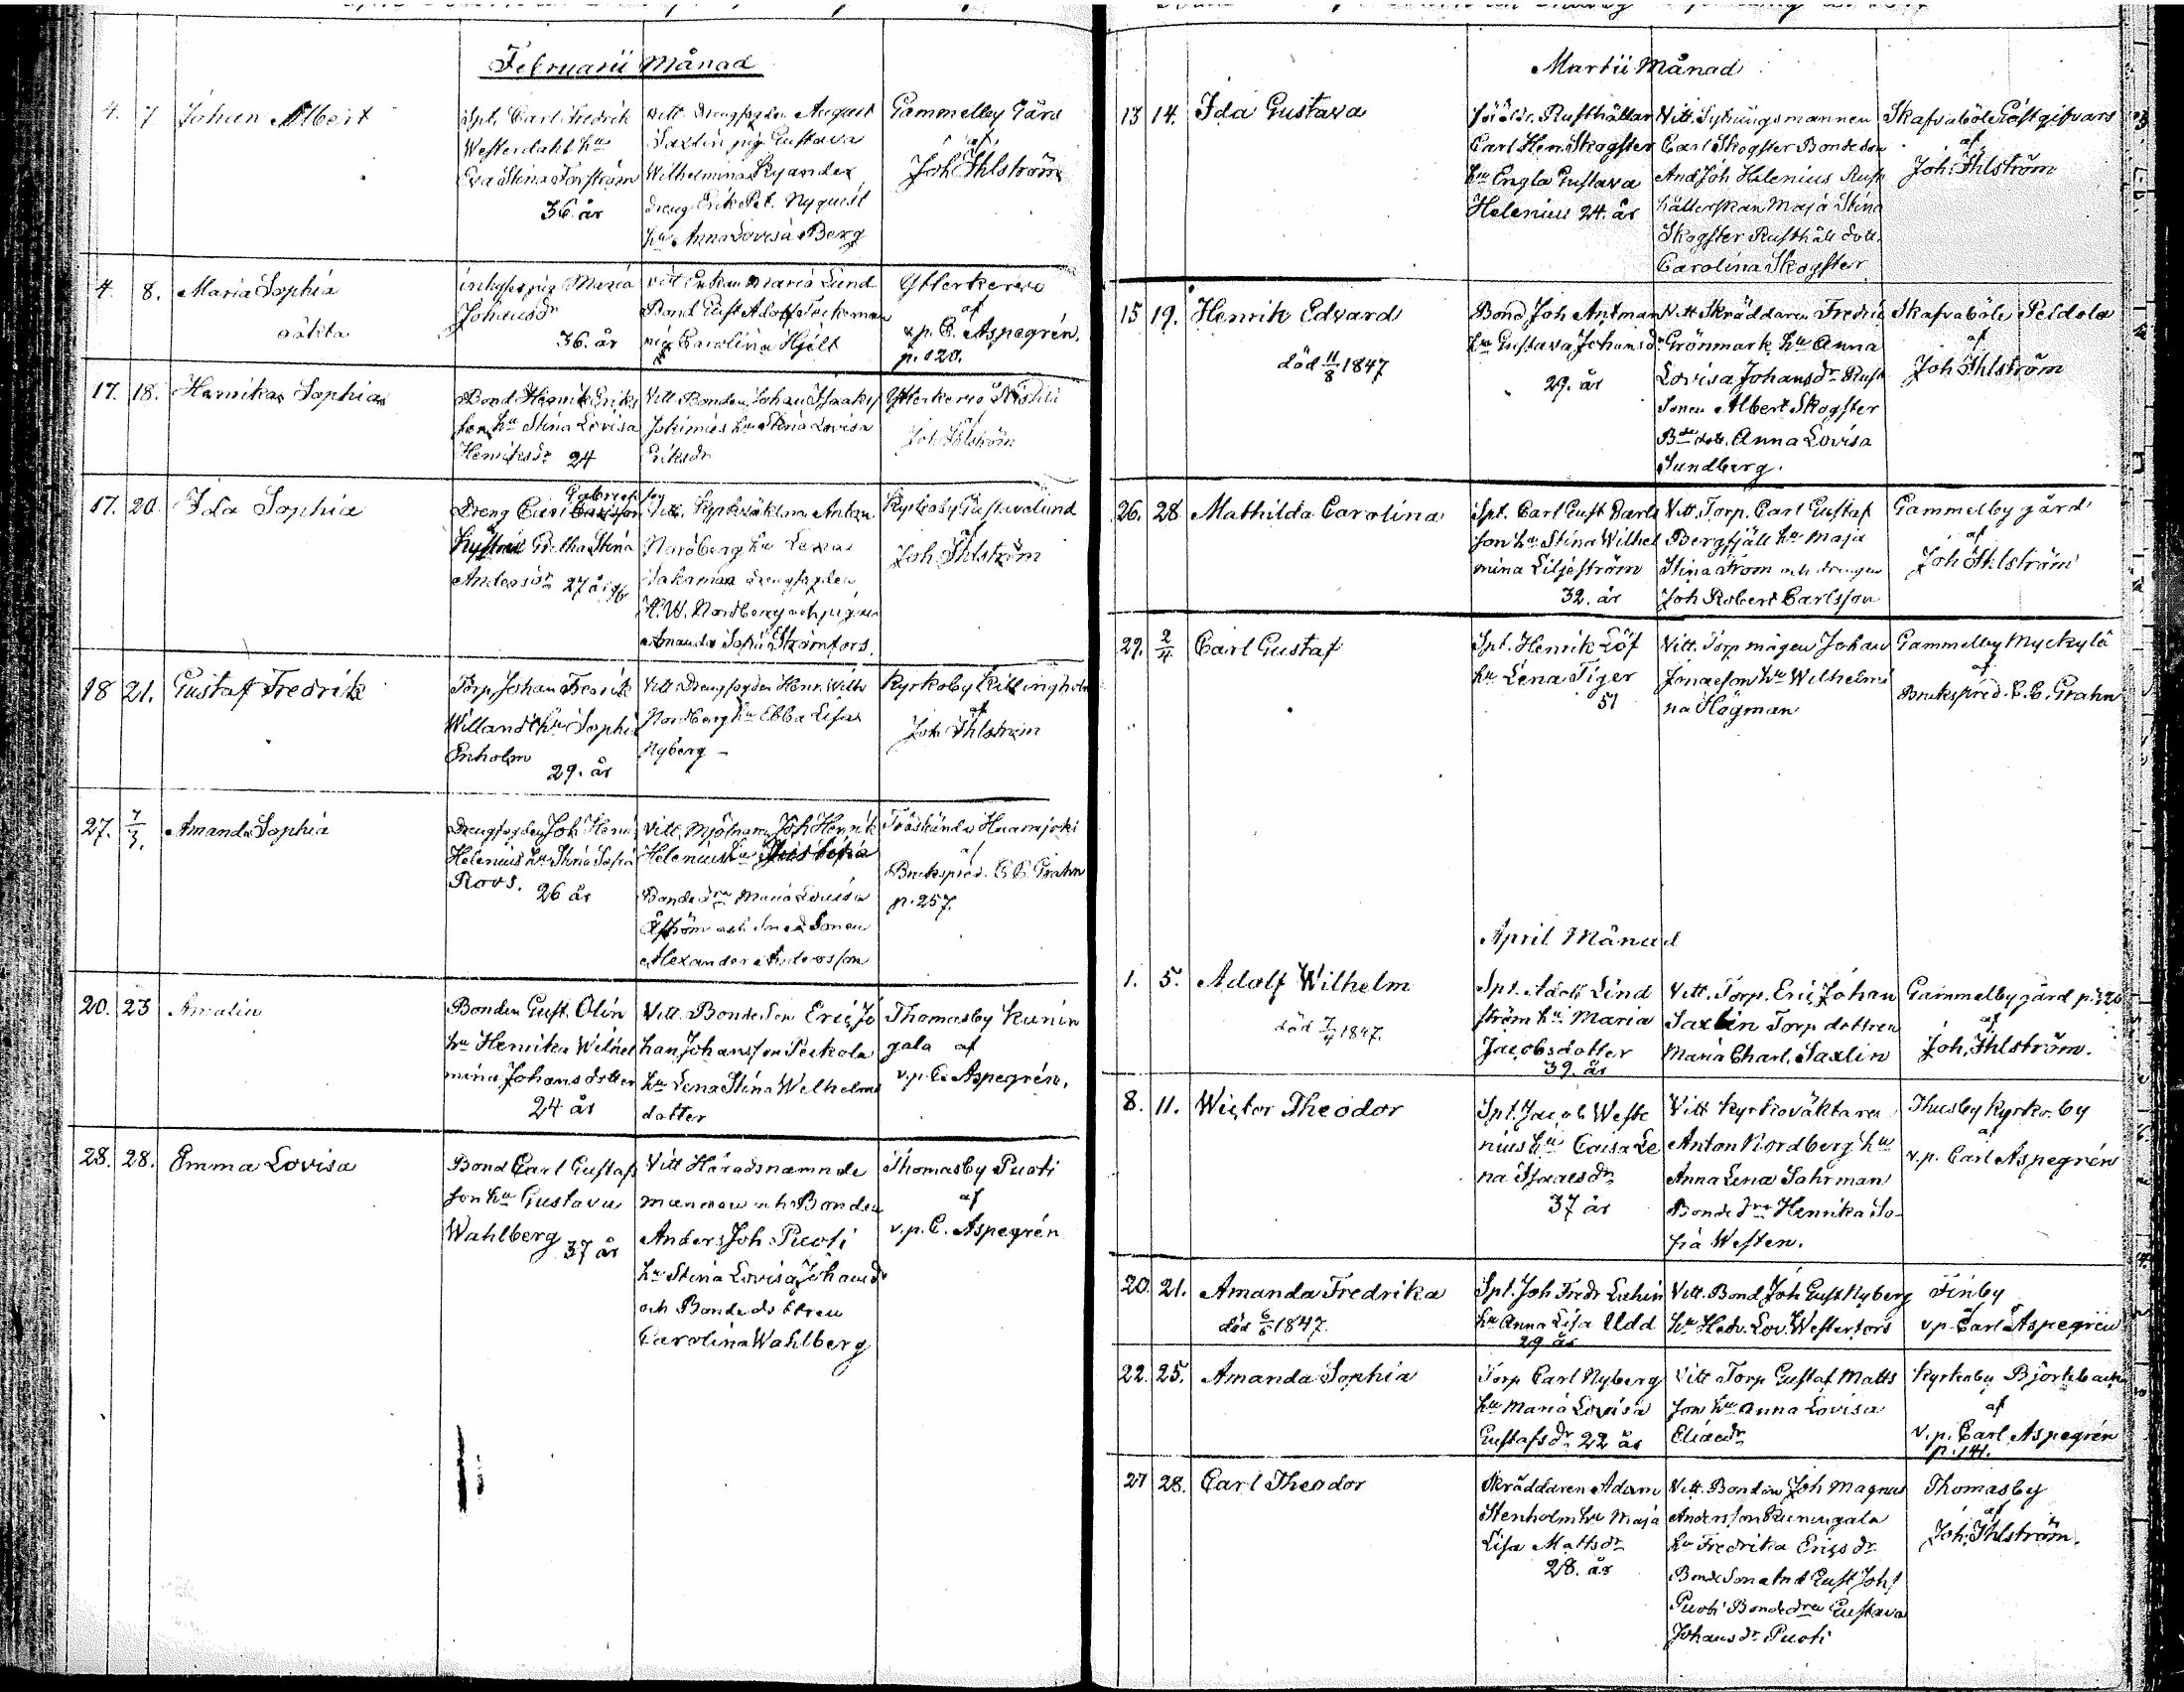 Februarii Månad
4. 7 Johan Albert
Spt. Carl Fredrik
Westerdahl hu
Eva Stina Forström
36. år
Vitt. Drengfogden August
Saxlin pig. Gustava
Wilhelmina Ryander
dreng Erik Pet. Nyqvist
hu Anna Lovisa Berg
Gammelby Gård
af
Joh Ihlström
4. 8. Maria Sophia
oäkta
inhyses pig Maria
Johansdr
36. år
Vitt Enkan Maria Lund
Bond Gust Adolf
pig Carolina Hjelt
Ytterkervo
af
v.p. C. Aspegrén.
p. 120.
17. 18. Henrika Sophia
Bond Henrik Eriks
son hu Stina Lovisa
Henriksdr 24
Vitt. Bonden Johan Isaaks
hu Stina Lovisa
Eriksdr
Ytterkervo
af
Joh Ihlström
17. 20 Ida Sophia
Gabriels son
Dreng
Gretha Stina
Andersdr 27 år
Vitt. Kyrkväktaren Anton
Nordberg hu Lena
Sahrman drengfogden
H. W. Nordberg och pigan
Amanda Sofia Strömfors.
Kyrkoby Gustavelund
af
Joh Ihlström
18 21. Gustaf Fredrik
Torp Johan Fredrik
Willandt hu Sophia
Enholm
29. år
Vitt. Drengfogden Henr. Wilh
Nordberg hu Ebba Lisa
Nyberg –
Kyrkoby Killingholm
af
Joh Ihlström
27. 7/3. Amanda Sophia
Drengfogden Joh Henr
Helenius hu Stina Sofia
Roos. 26 år
Vitt. Mjölnaren Joh Henrik
Helenius hu
Bondedrn Maria Lovisa
Åström och Sonen
Alexander Andersson
Träskända Haarajoki
af
Brukspred. C. C. Grahn
p. 257.
20. 23 Amalia
Bonden Gust. Olin
hu Henrika Wilhel
mina Johansdotter
24 år
Vitt. Bonde Son Eric Jo
han Johansson Peckola
hu Lena Stina Wilhelms
dotter
Thomasby Kunin
gala af
v.p. C. Aspegrén.
28. 28. Emma Lovisa
Bond Carl Gustafs
son hu Gustava
Wahlberg 37 år
Vitt Häradsnämnde
mannen och Bonden
Anders Joh. Puoti
hu Stina Lovisa Johansdr
och Bondedottren
Carolina Wahlberg
Thomasby Puoti
af
v.p. C. Aspegrén
Martii Månad
13 14. Ida Gustava
Rusthållar
Carl Henr. Skogster
hu Engla Gustava
Helenius 24. år
Vitt.
Carl Skogster Bondeson
And Joh Helenius Rust
hållerskan Maja Stina
Skogster Rusthåll dott.
Carolina Skogster
Skafvaböle Gästgifvars
af
Joh. Ihlström
15 19. Henrik Edvard
död 11/8 1847
Bond Joh Antman
hu Gustava Johansdr
29. år
Vitt Skräddaren Fredric
Grönmark hu Anna
Lovisa Johansdr Rust
Sonen Albert Skogster
Bde dott. Anna Lovisa
Sundberg.
Skafvaböle Peldola
af
Joh Ihlström
26. 28 Mathilda Carolina
Spt. Carl Gust Carls
son hu Stina Wilhel
mina Liljeström
32. år
Vitt. Torp. Carl Gustaf
Bergfjäll hu Maja
Stina Ström och drengen
Joh Robert Carlsson
Gammelby gård
af
Joh Ihlström
29. 2/4 Carl Gustaf
Spt. Henrik Löf
hu Lena Tiger
51
Vitt. Torp mågen Johan
hu Wilhelmi
na Högman
Gammelby Myckylä
af
Brukspred. C. C. Grahn
April Månad
1. 5. Adolf Wilhelm
död 7/4 1847.
Spt. Adolf Lind
ström hu Maria
Jacobsdotter
39. år
Vitt. Torp. Eric Johan
Saxlin Torp dottren
Maria Charl. Saxlin
Gammelby gård
af
Joh. Ihlström.
8. 11. Wictor Theodor
Spt. Jacob Weste
nius hu Caisa Le
na Isaacsdr
37 år
Vitt Kyrkoväktaren
Anton Nordberg hu
Anna Lena Sahrman
Bondedrn Henrika So-
fia Westen.
Thusby Kyrkoby
af
v.p. Carl Aspegrén
20. 21. Amanda Fredrika
död 6/5 1847.
Spt. Joh Fredr Luhin
hu Anna Lisa Udd
29 år
Vitt. Bond Joh Gust Nyberg
hu Hedv. Lov. Westerfors
Finby
af
v.p. Carl Aspegrén
22. 25. Amanda Sophia
Torp Carl Nyberg
hu Maria Lovisa
Gustafsdr 22 år
Vitt Torp Gustaf Matts
son hu Anna Lovisa
Eliaedr
Kyrkoby Björkbacka
af
v.p. Carl Aspegrén
p. 141.
27 28. Carl Theodor
Skräddaren Adam
Stenholm hu Maja
Lisa Mattsdr
28. år
Vitt. Bonden Joh Magnus
Andersson Kuningala
hu Fredrika Ericsdr
Bonde Son And Gust Johs
Puoti Bondedrn Gustava
Johansdr Puoti
Thomasby
af
Joh. Ihlström.